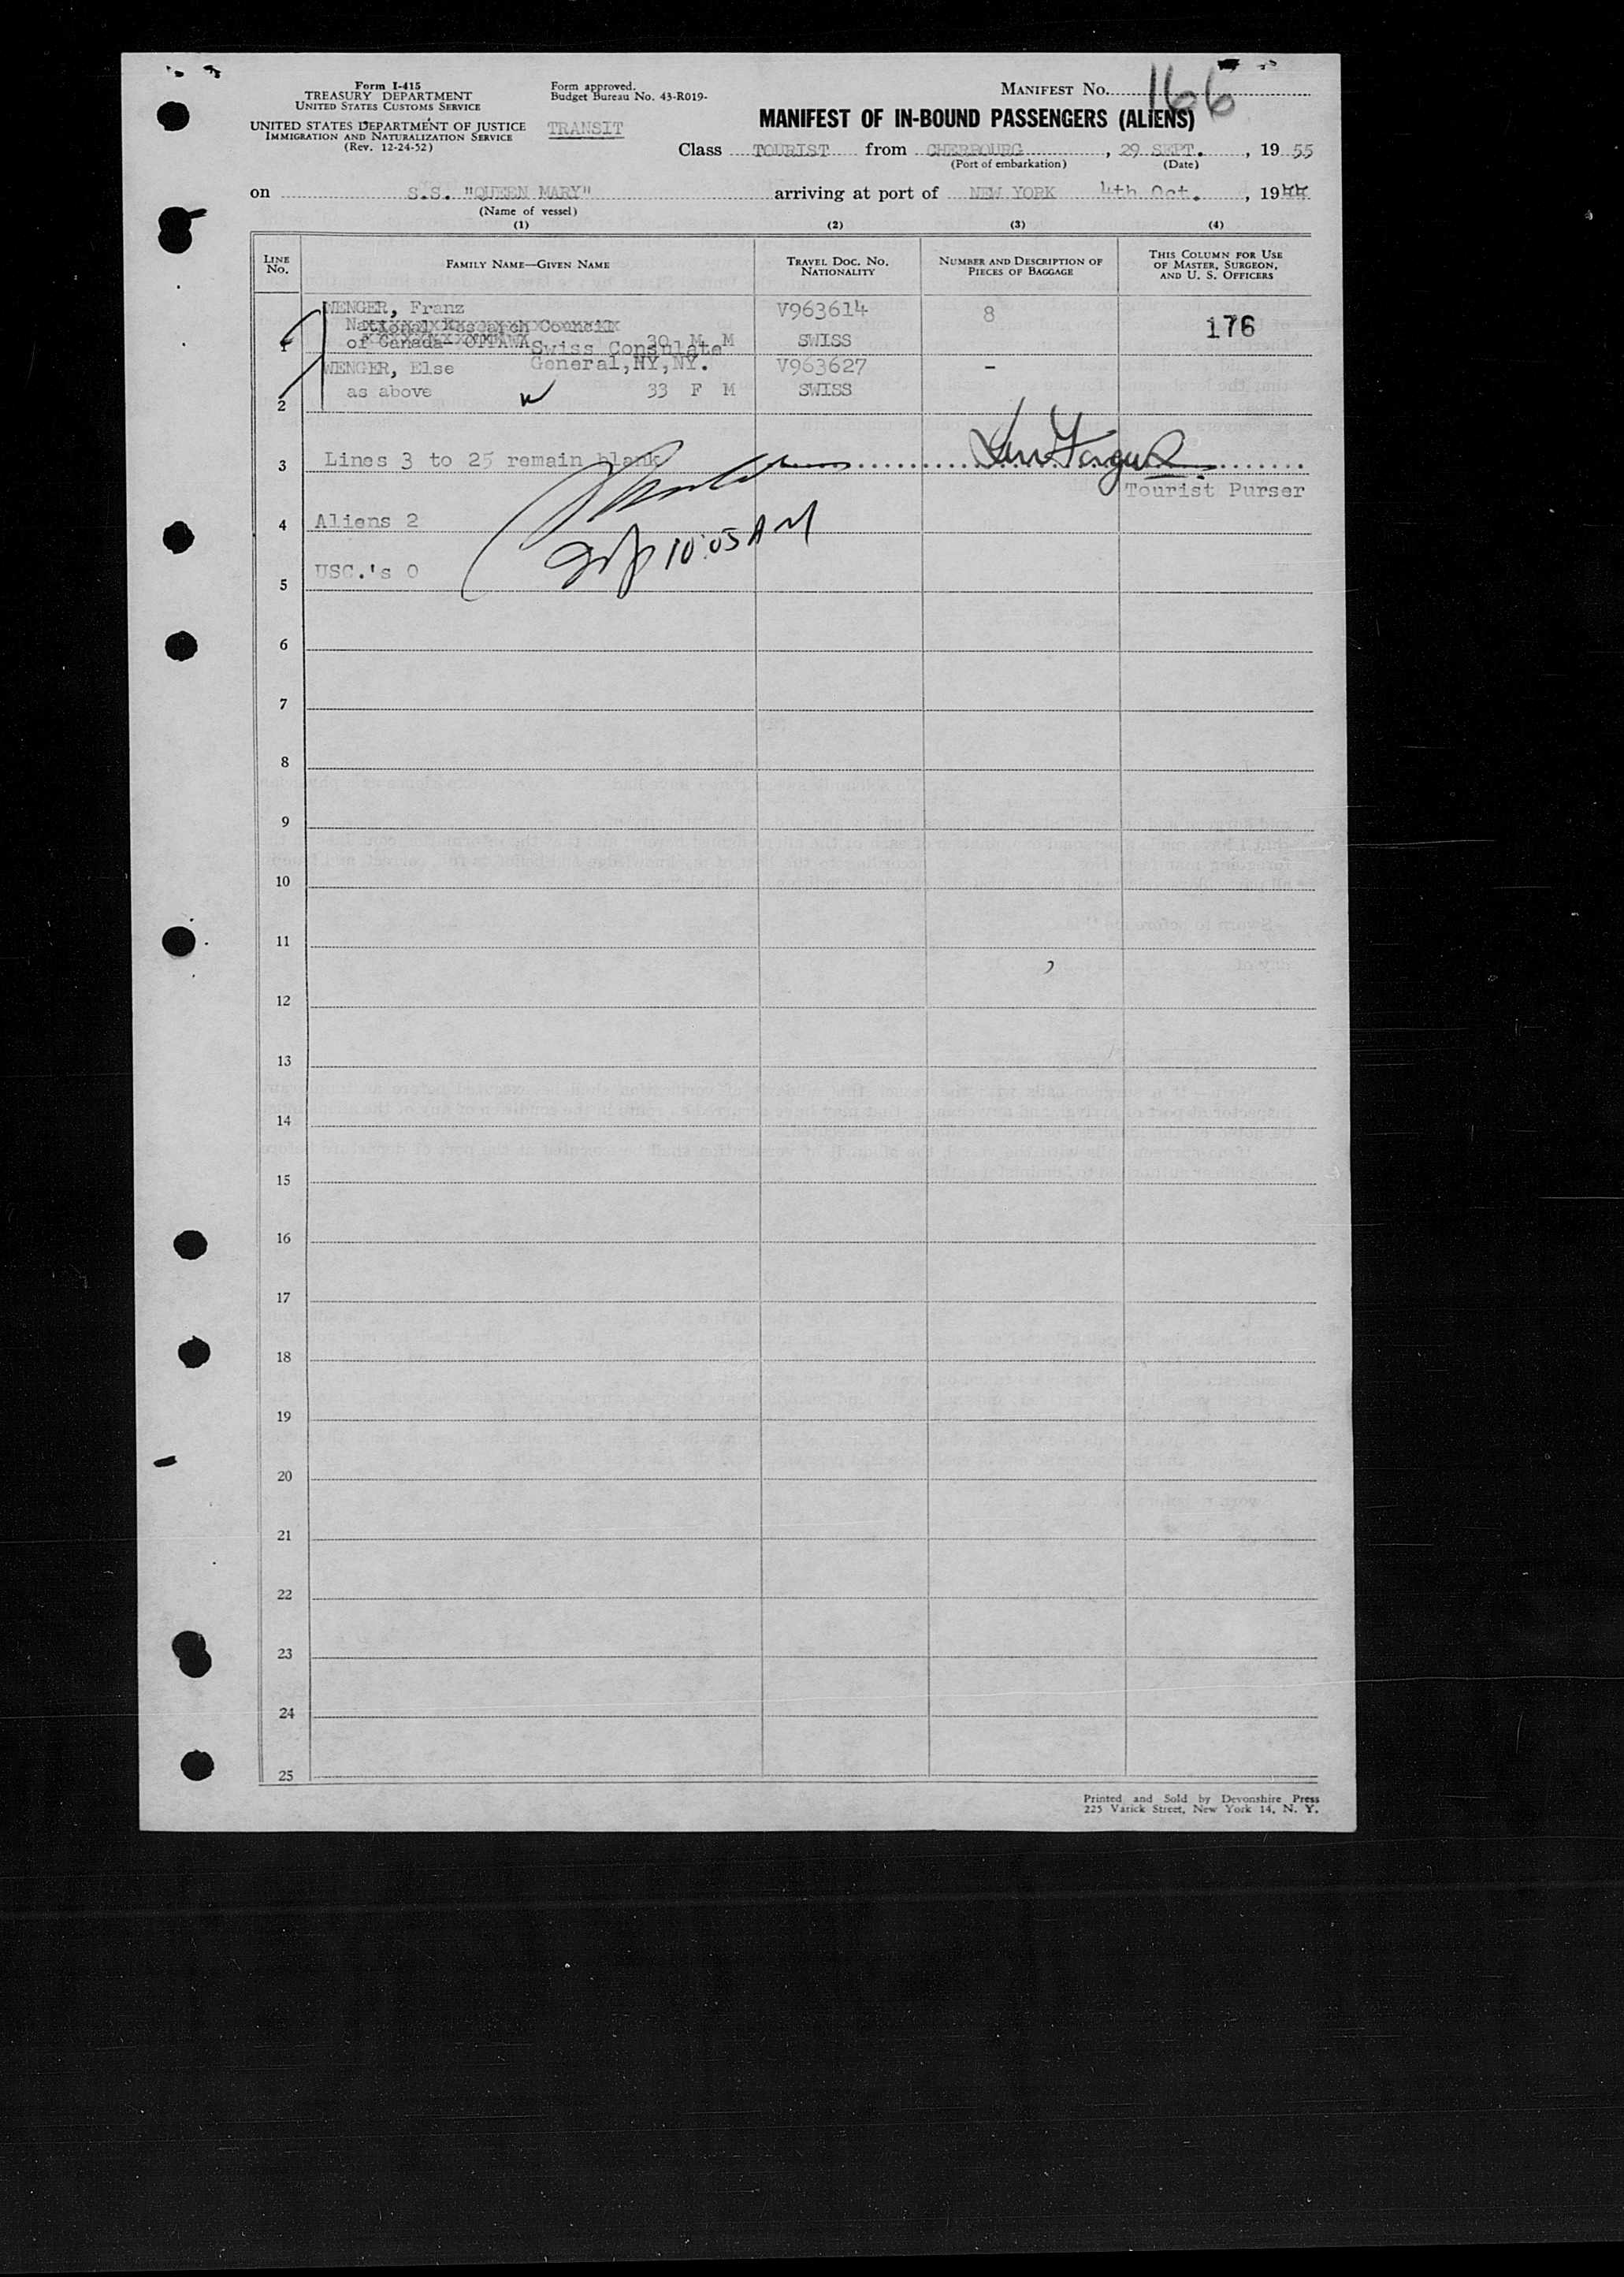 Form I-415
TREASURY DEPARTMENT
UNITED STATES CUSTOMS SERVICE
UNITED STATES DEPARTMENT OF JUSTICE
IMMIGRATION AND NATURALIZATION SERVICE
(Rev. 12-24-52)
Form approved.
Budget Bureau No. 43-R019-
TRANSIT
MANIFEST No. 166
MANIFEST OF IN-BOUND PASSENGERS (ALIENS)
Class TOURIST from CHERBOURG, 29 SEPT., 19 55
(Port of embarkation) (Date)
on S.S. "QUEEN MARY" arriving at port of NEW YORK 4th Oct., 19
(Name of vessel)
(1) (2) (3) (4)
LINE No.
FAMILY NAME—GIVEN NAME
TRAVEL DOC. NO. NATIONALITY
NUMBER AND DESCRIPTION OF PIECES OF BAGGAGE
THIS COLUMN FOR USE OF MASTER, SURGEON, AND U. S. OFFICERS
WENGER, Franz V963614 8 176
National Research Council
1 of Canada OTTAWA 30 M M SWISS
Swiss Consulate
General, NY, NY.
WENGER, Else V963627 -
2 as above 33 F M SWISS
3 Lines 3 to 25 remain blank
Tourist Purser
4 Aliens 2
10:05 AM
5 USC.'s 0
6
7
8
9
10
11
12
13
14
15
16
17
18
19
20
21
22
23
24
25
Printed and Sold by Devonshire Press
225 Varick Street, New York 14, N. Y.